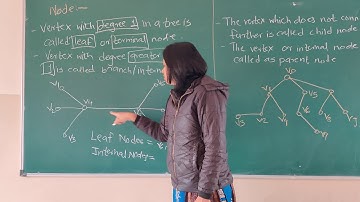 Node:-
- Vertex with degree 1 in a tree is
called leaf or terminal node
- Vertex with degree greater
1 is called branch/intern
Leaf Nodes =
Internal Nodes =
- The vertex which does not con
further is called child node
- The vertex or internal node
called as parent node
V1
V2
V3
V4
V0
V5
V3
V2